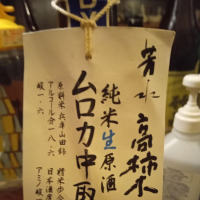 芳水 高柿木
純米生原酒
ムロカ中取
原料米 兵庫山田錦
アルコール分 一八.六
精米歩合
日本酒度
アミノ